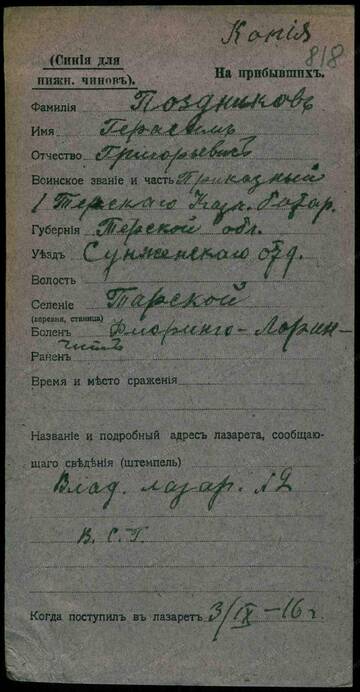 Копія
818
(Синія для
нижн. чиновъ).
На прибывшихъ.
Фамилія Поздняковъ
Имя Герасимъ
Отчество Григорьевичъ
Воинское званіе и часть Приказный
1 Терскаго Каз. батар.
Губернія Терской обл.
Уѣздъ Сунженскаго отд.
Волость
Селеніе Тарской
(деревня, станица)
Боленъ Флоринго-Ларин-
читъ
Раненъ
Время и мѣсто сраженія
Названіе и подробный адресъ лазарета, сообщаю-
щаго свѣдѣнія (штемпель)
Влад. лазар. №2
В. С. Г.
Когда поступил въ лазаретъ 3/IX-16 г.